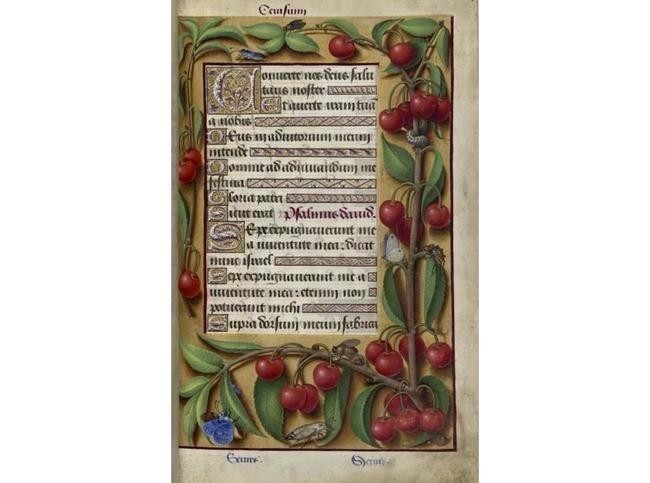 Cerasum
Converte nos deus salu
taris noster
Et averte iram tuã
a nobis
Deus in adiutorium meum
intende
Domine ad adiuvandum me
festina
Gloria patri
Sicut erat Psalmus david.
Sepe expugnaverunt me
a iuventute mea: dicat
nunc israel
Sepe expugnaverunt me a
iuventute mea: etenim non
potuerunt michi
Supra dorsum meum fabrica